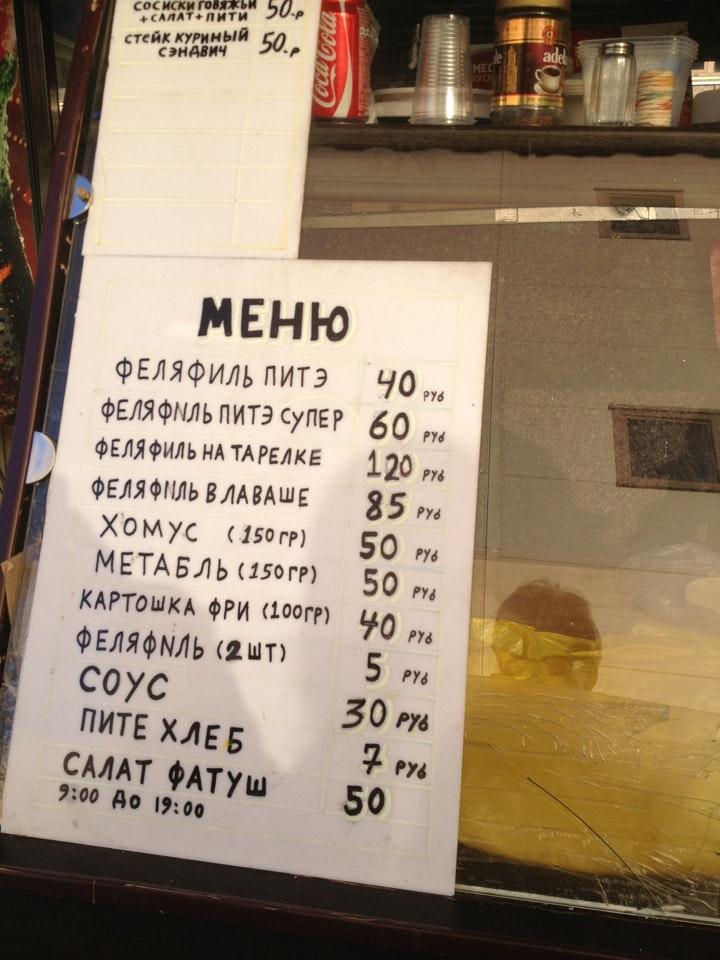 СОСИСКИ ГОВЯЖЬИ 50.р
+ САЛАТ + ПИТИ
СТЕЙК КУРИНЫЙ 50.р
СЭНДВИЧ
Coca-Cola
МЕНЮ
ФЕЛЯФИЛЬ ПИТЭ 40 РУб
ФЕЛЯФИЛЬ ПИТЭ СУПЕР 60 РУб
ФЕЛЯФИЛЬ НА ТАРЕЛКЕ 120 РУб
ФЕЛЯФИЛЬ В ЛАВАШЕ 85 РУб
ХОМУС (150 ГР) 50 РУб
МЕТАБЛЬ (150 ГР) 50 РУб
КАРТОШКА ФРИ (100ГР) 40 РУб
ФЕЛЯФИЛЬ (2 ШТ) 5 РУб
СОУС 30 РУб
ПИТЕ ХЛЕБ 7 РУб
САЛАТ ФАТУШ 50
9:00 ДО 19:00